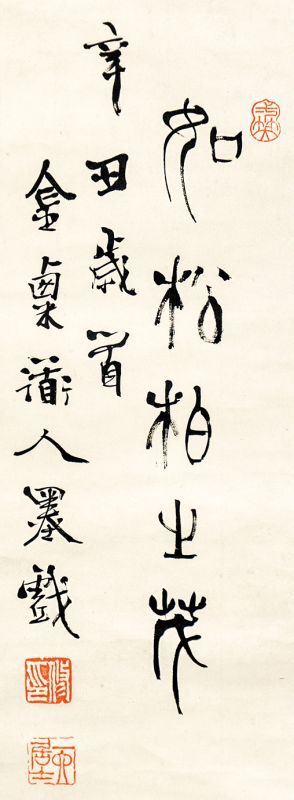 如松柏之茂
辛丑歲首
金粟衜人墨戲